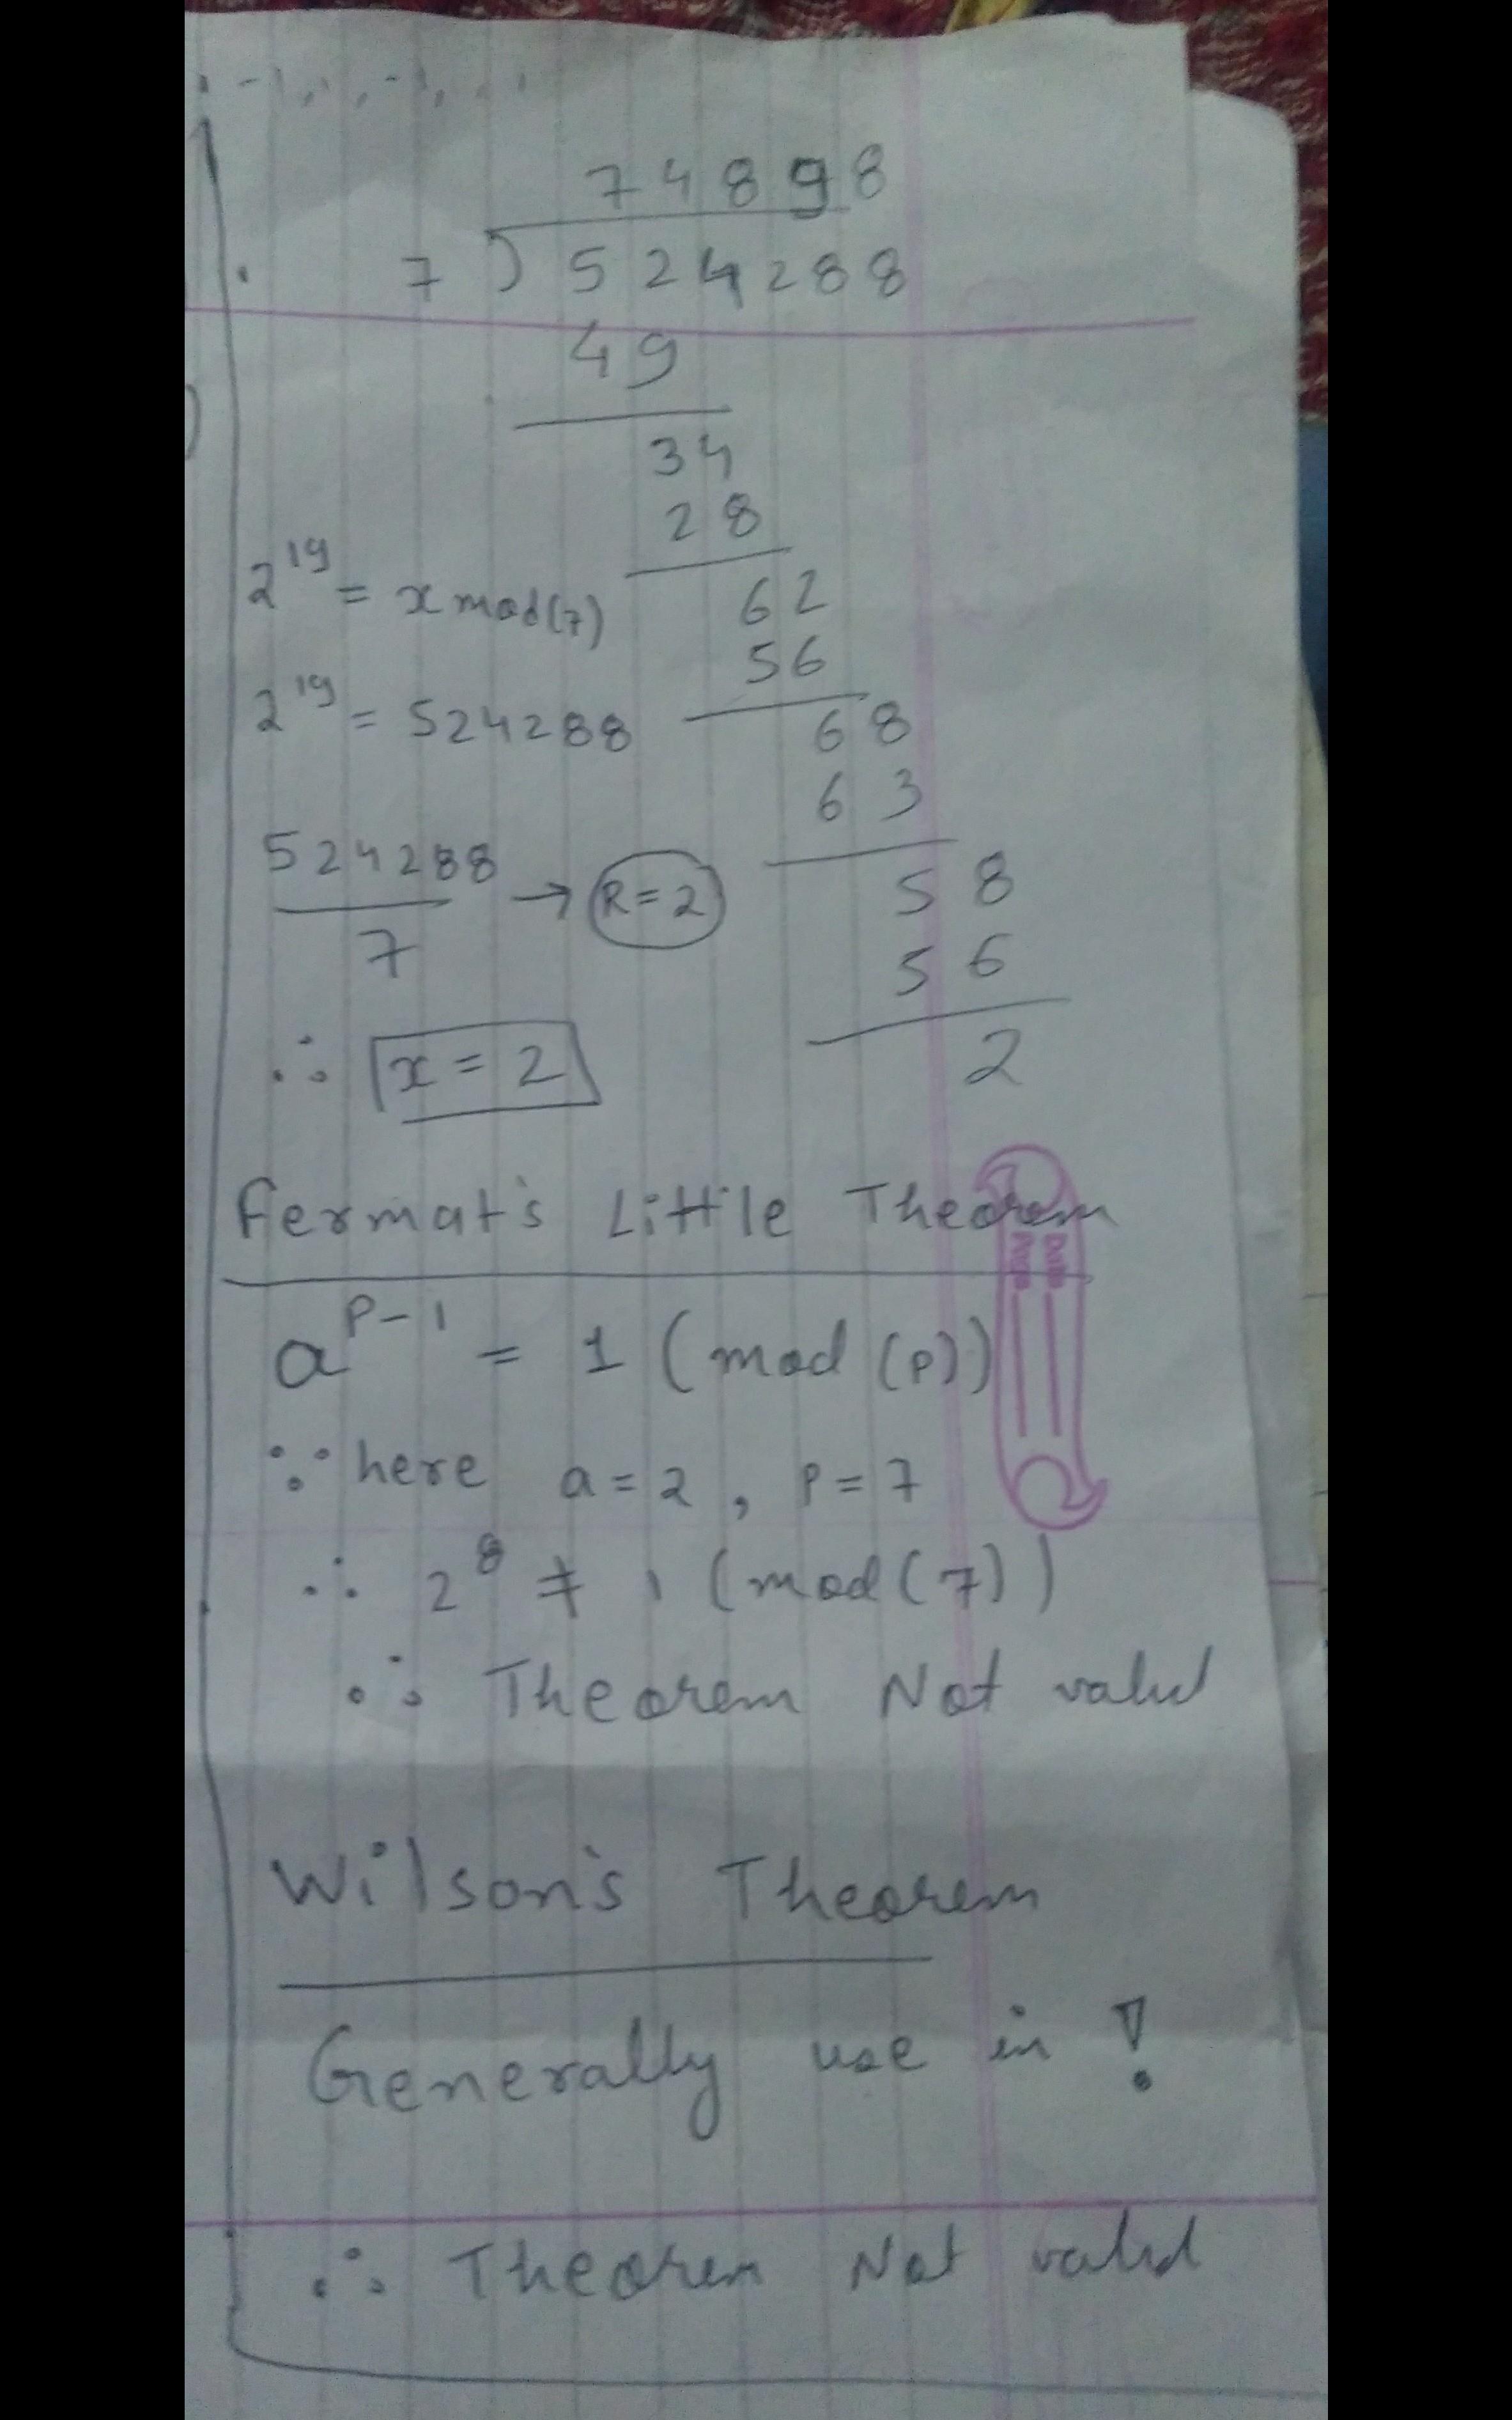 74898
7 ) 524288
49
34
28
2^19 = x mod(7)
62
56
2^19 = 524288
68
63
524288
7
→ R=2
58
56
2
∴ x = 2
Fermat's Little Theorem
Date
Page
a^P-1 = 1 (mod (P))
∵ here a = 2 , P = 7
∴ 2^8 ≠ 1 (mod (7))
∴ Theorem Not valid
Wilson's Theorem
Generally use in !
∴ Theorem Not valid